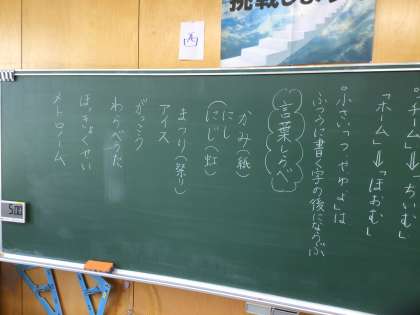 挑戦しよう
西
「チーム」⇒「ちいむ」
「ホーム」⇒「ほおむ」
小さい「っゃゅょ」は
ふつうに書く字の後にならぶ
言葉しらべ
かみ(紙)
にし
にじ(虹)
まつり(祭り)
アイス
がっこう
わらべうた
ほっきょくせい
メトロノーム